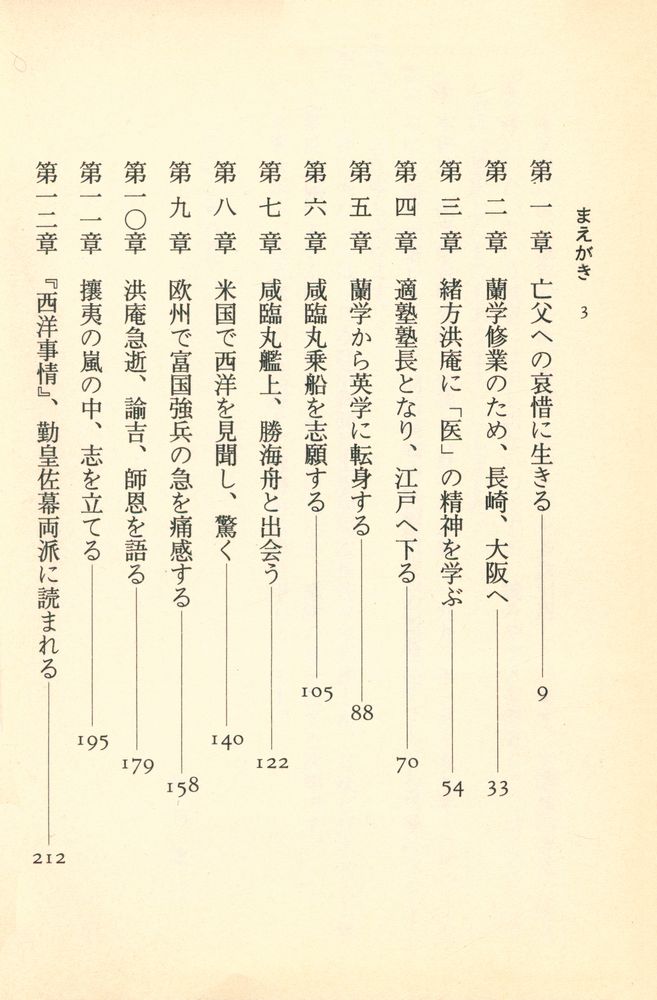 まえがき 3
第一章 亡父への哀惜に生きる 9
第二章 蘭学修業のため、長崎、大阪へ 33
第三章 緒方洪庵に「医」の精神を学ぶ 54
第四章 適塾塾長となり、江戸へ下る 70
第五章 蘭学から英学に転身する 88
第六章 咸臨丸乗船を志願する 105
第七章 咸臨丸艦上、勝海舟と出会う 122
第八章 米国で西洋を見聞し、驚く 140
第九章 欧州で富国強兵の急を痛感する 158
第一〇章 洪庵急逝、諭吉、師恩を語る 179
第一一章 攘夷の嵐の中、志を立てる 195
第一二章 『西洋事情』、勤皇佐幕両派に読まれる 212